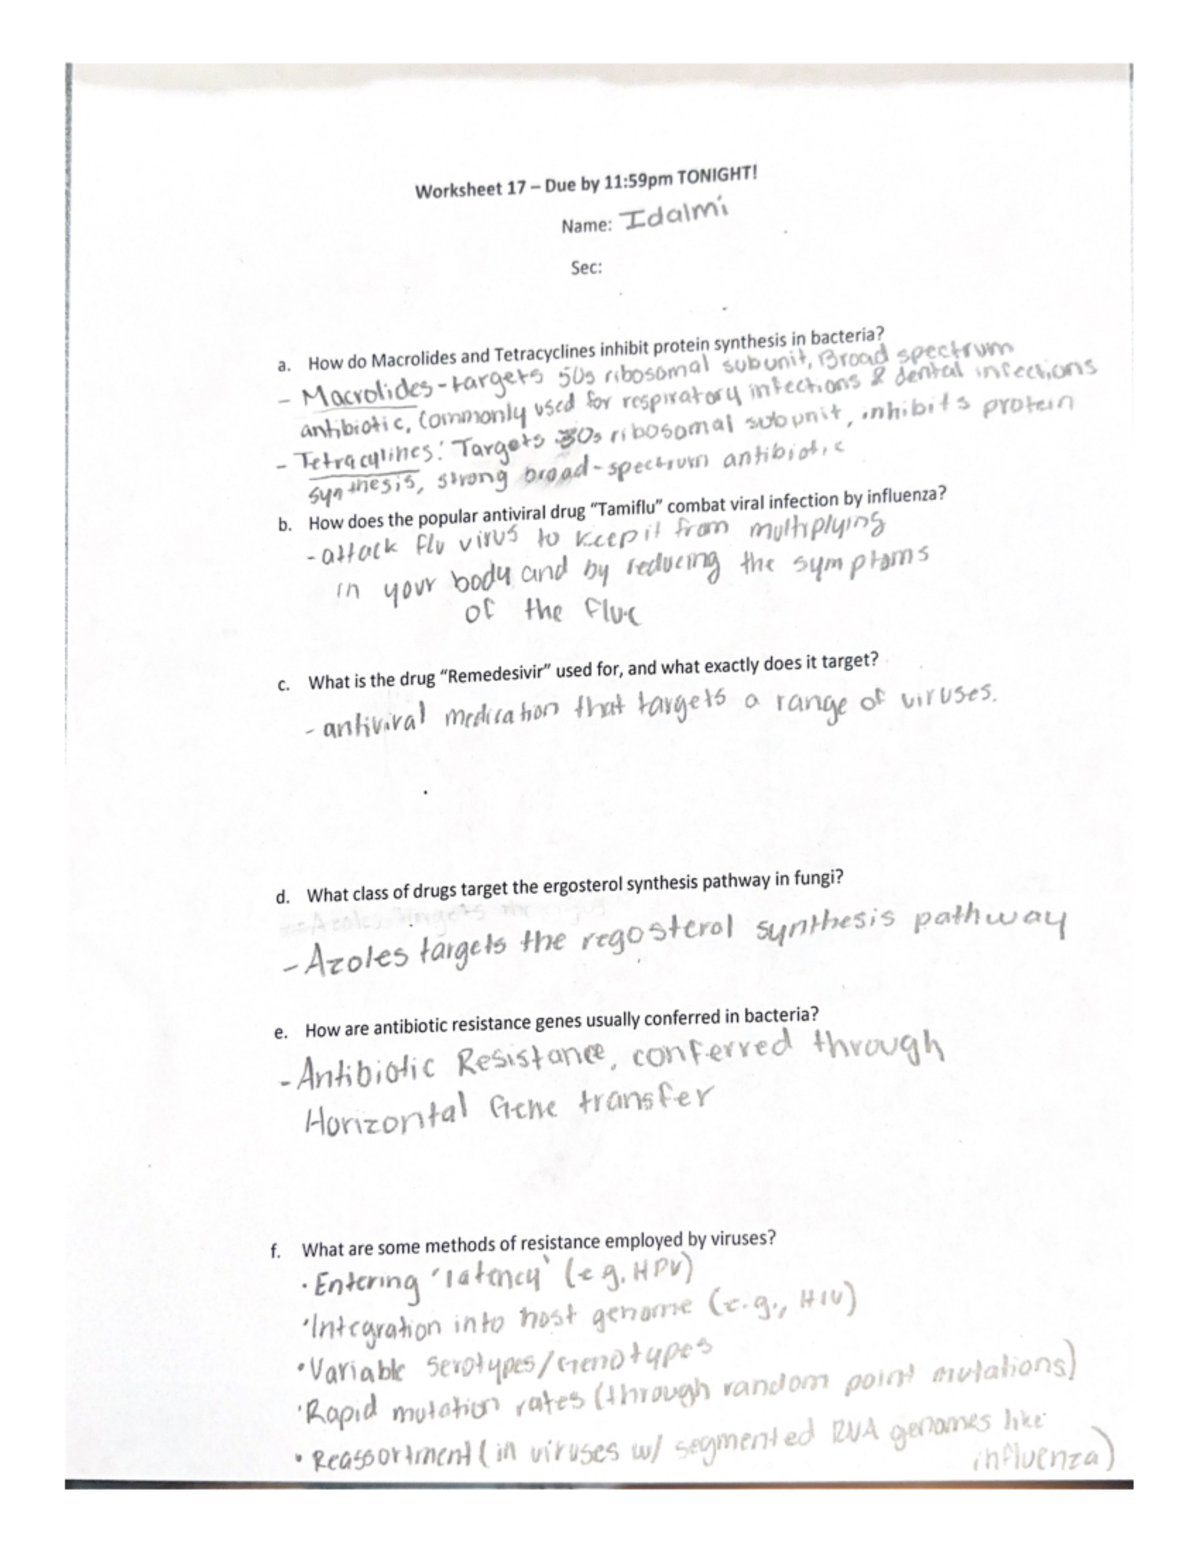 Worksheet 17 – Due by 11:59pm TONIGHT!
Name: Idalmi
Sec:
a. How do Macrolides and Tetracyclines inhibit protein synthesis in bacteria?
- Macrolides - targets 50s ribosomal subunit, Broad spectrum
antibiotic, Commonly used for respiratory infections & dental infections
- Tetracylines: Targets 30s ribosomal subunit, inhibits protein
synthesis, strong broad-spectrum antibiotic
b. How does the popular antiviral drug “Tamiflu” combat viral infection by influenza?
- attack flu virus to keep it from multiplying
in your body and by reducing the symptoms
of the flu.
c. What is the drug “Remedesivir” used for, and what exactly does it target?
- antiviral medication that targets a range of viruses.
d. What class of drugs target the ergosterol synthesis pathway in fungi?
- Azoles targets the regosterol synthesis pathway
e. How are antibiotic resistance genes usually conferred in bacteria?
- Antibiotic Resistance, conferred through
Horizontal Gene transfer
f. What are some methods of resistance employed by viruses?
• Entering 'latency' (e.g. HPV)
• Integration into host genome (e.g., HIV)
• Variable Serotypes/Genotypes
• Rapid mutation rates (through random point mutations)
• Reassortment (in viruses w/ segmented RNA genomes like
influenza)